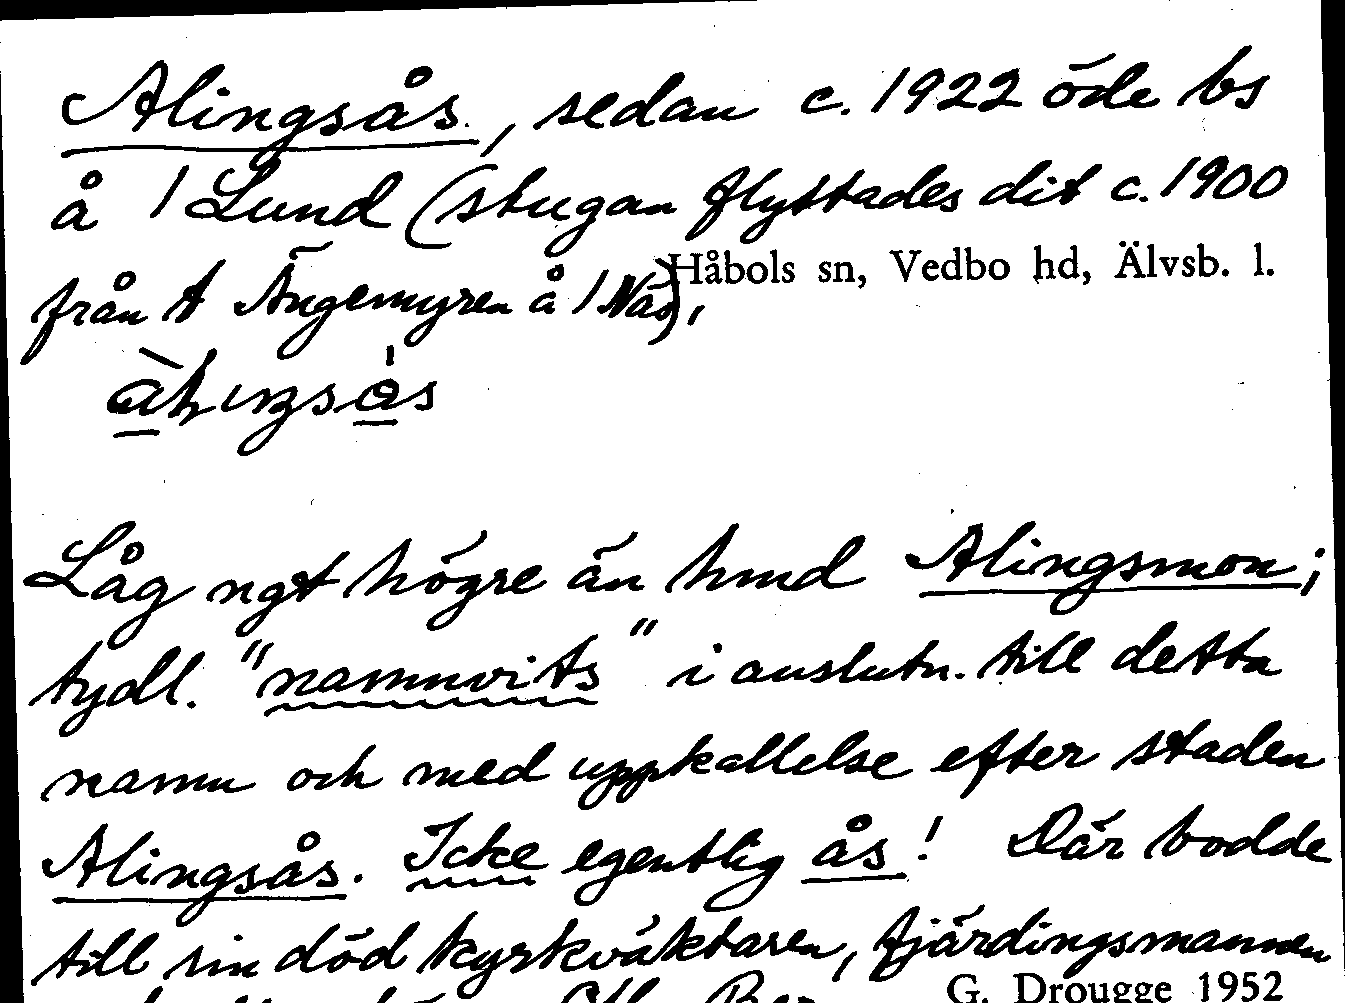 Alingsås, sedan c. 1922 öde bs
å 1 Lund (stugan flyttades dit c. 1900
Håbols sn, Vedbo hd, Älvsb. l.
från t Ängemyren å 1 Näs),
Låg ngt högre än hmd Alingsmon;
tydl. "namnvits" i anslutn. till detta
namn och med uppkallelse efter staden
Alingsås. Icke egentlig ås! Där bodde
till sin död kyrkväktaren, fjärdingsmannen
G. Drougge 1952